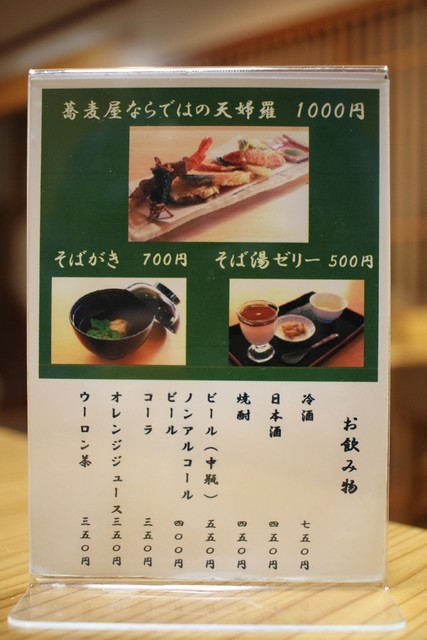 蕎麦屋ならではの天婦羅 1000円
そばがき 700円
そば湯ゼリー 500円
お飲み物
冷酒 七五〇円
日本酒 四五〇円
焼酎 四五〇円
ビール(中瓶) 五五〇円
ノンアルコール
ビール 四〇〇円
コーラ 三五〇円
オレンジジュース 三五〇円
ウーロン茶 三五〇円